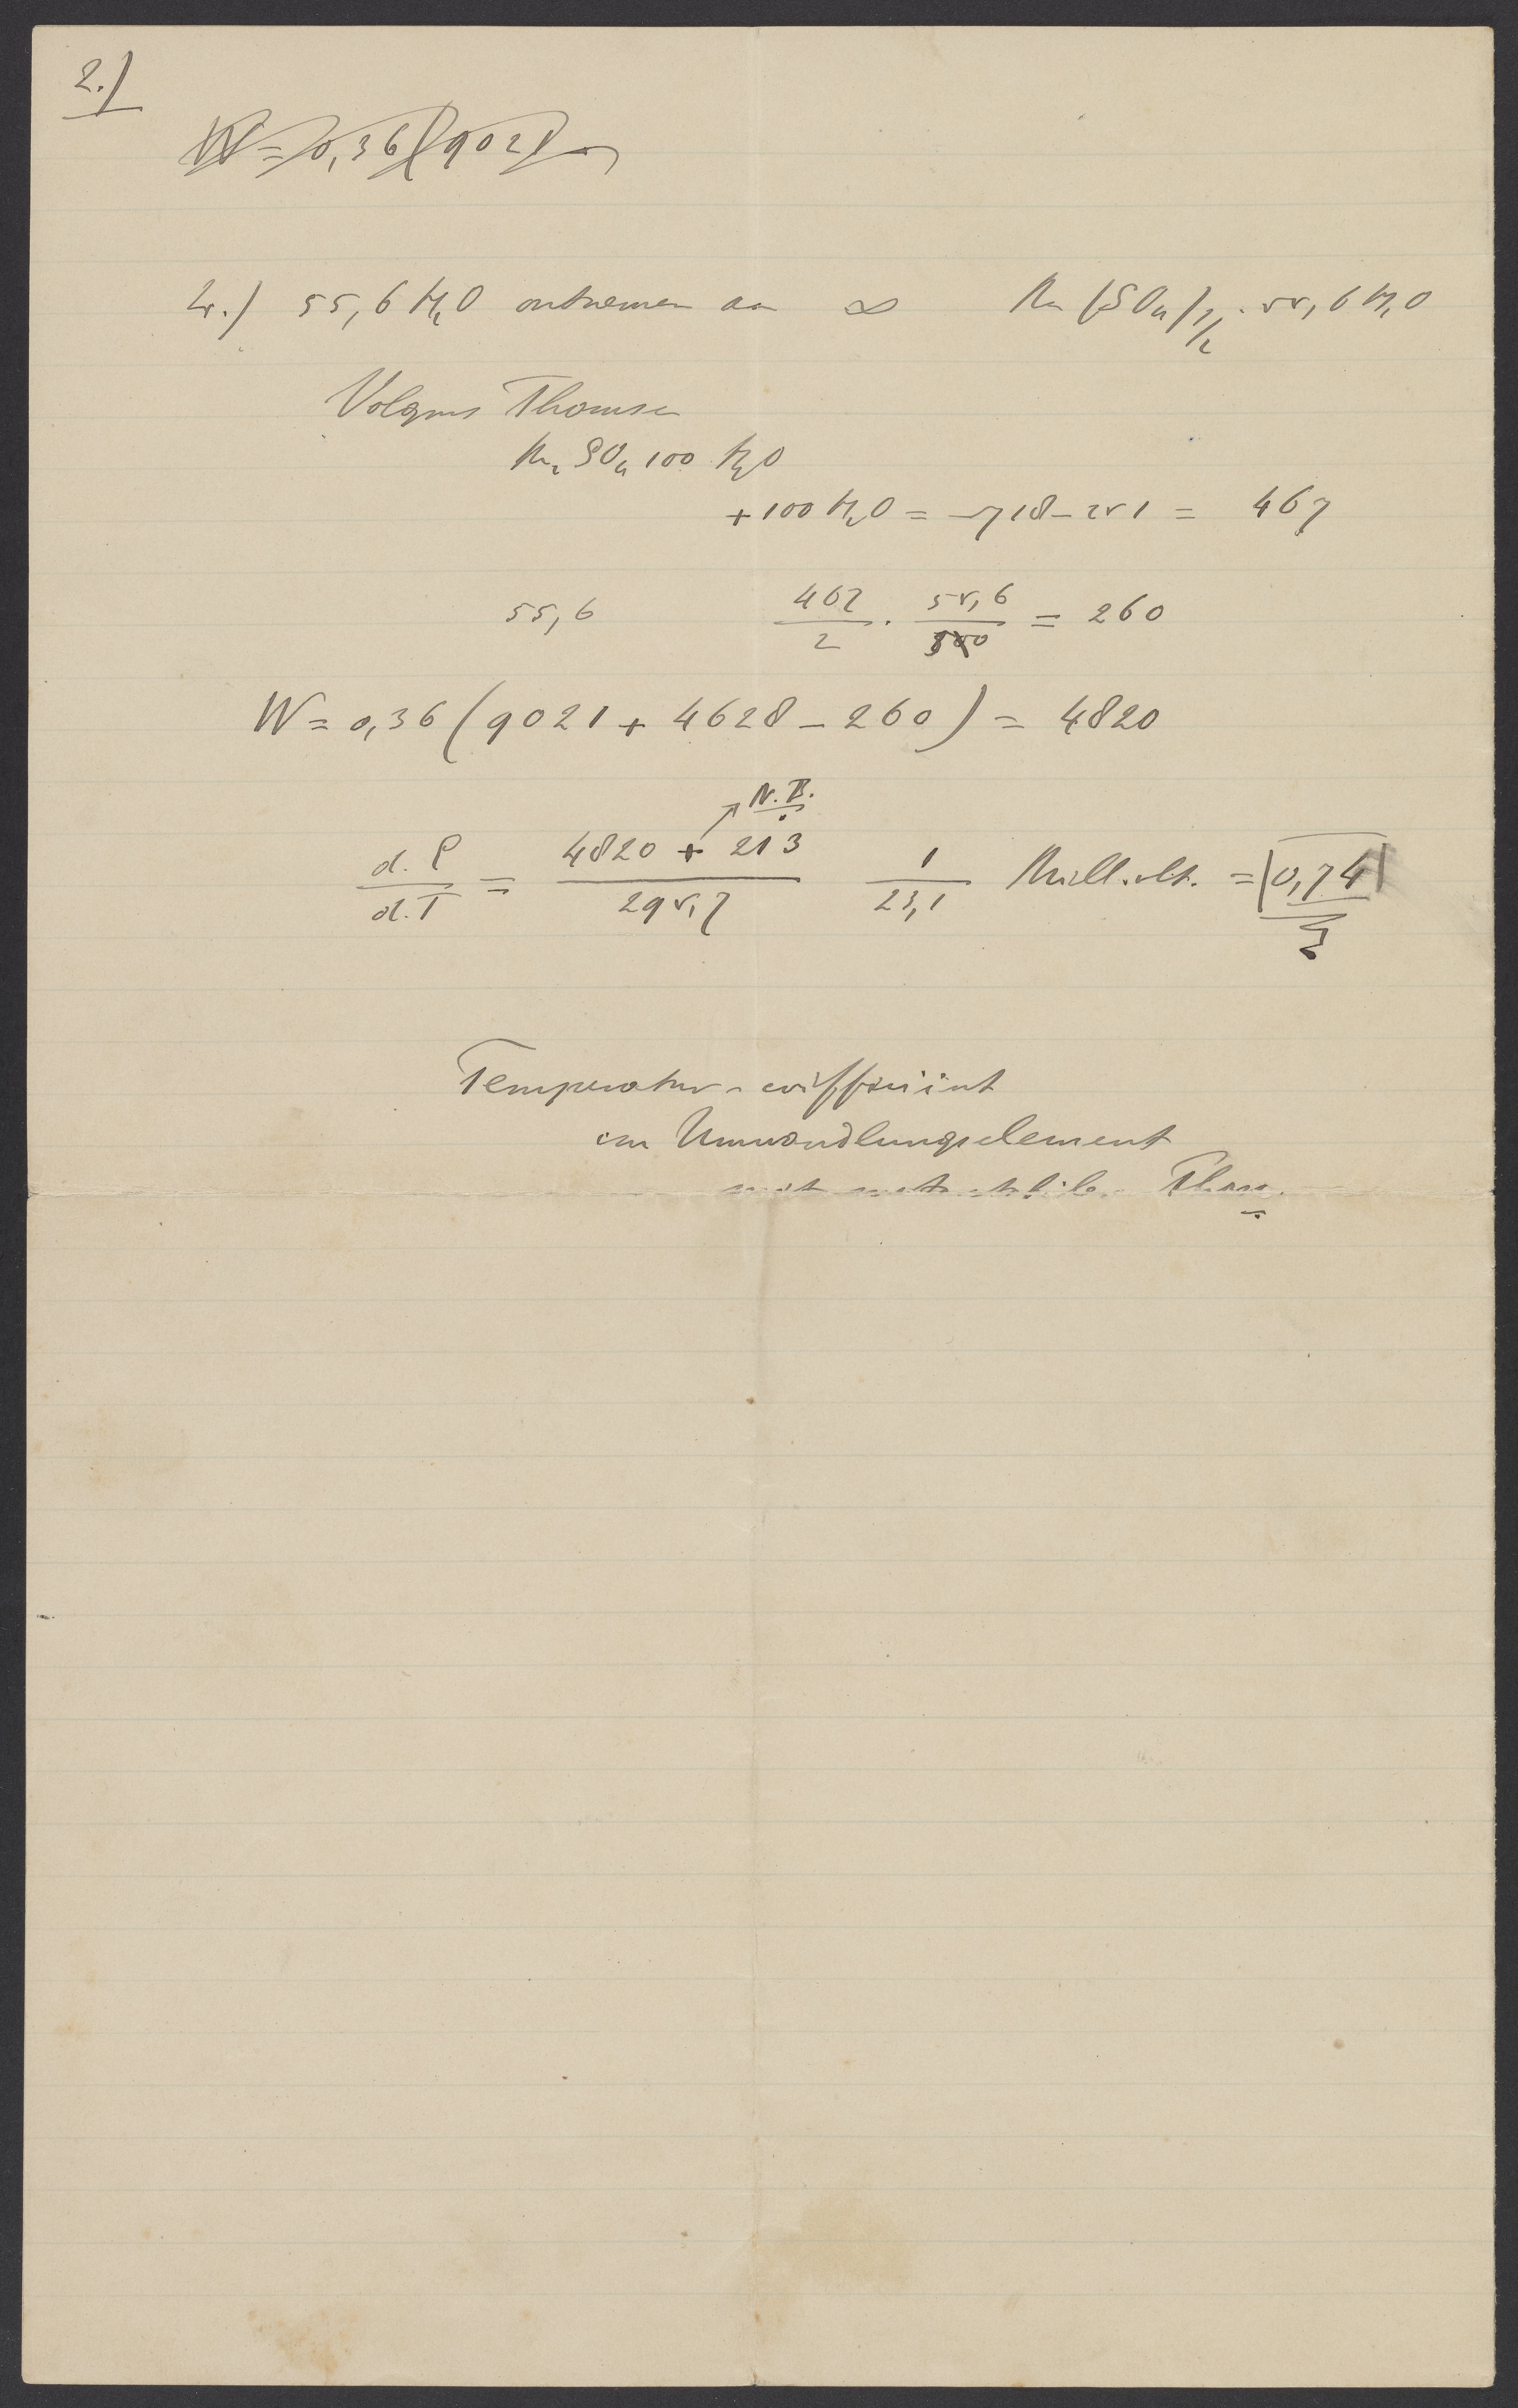 2.)
W = 0,36 (9021
2.) 55,6 H2O ontnemen aan ∞ Na (SO4)1/2 . 55,6 H2O
Volgens Thomsen
Na2 SO4 100 H2O
+ 100 H2O = 718 - 251 = 467
55,6 467/2 . 55,6/100 = 260
W = 0,36 (9021 + 4628 - 260) = 4820
N.B.
d.P/d.T = 4820 + 213/295,7 1/23,1 Mill.volt. = 0,74
Temperatur-coëfficiënt
Umwandlungselement